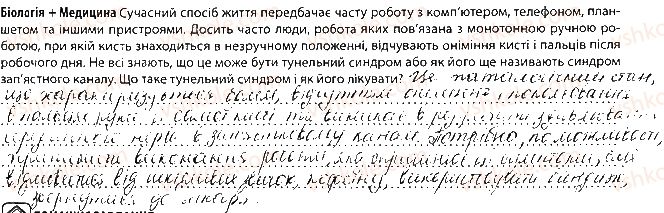 Біологія + Медицина Сучасний спосіб життя передбачає часту роботу з комп'ютером, телефоном, план-
шетом та іншими пристроями. Досить часто люди, робота яких пов'язана з монотонною ручною ро-
ботою, при якій кисть знаходиться в незручному положенні, відчувають оніміння кисті і пальців після
робочого дня. Не всі знають, що це може бути тунельний синдром або як його ще називають синдром
зап'ястного каналу. Що таке тунельний синдром і як його лікувати? Це патологічний стан,
що характеризується болем, відчуттям оніміння, поколювання
в ділянці кисті та виникає в результаті
нерва в зап'ястковому каналі. Потрібно, по можливості,
припинити виконання роботи, яка спричиняє
відмовитися від шкідливих звичок, використовувати
звернутися до лікаря.